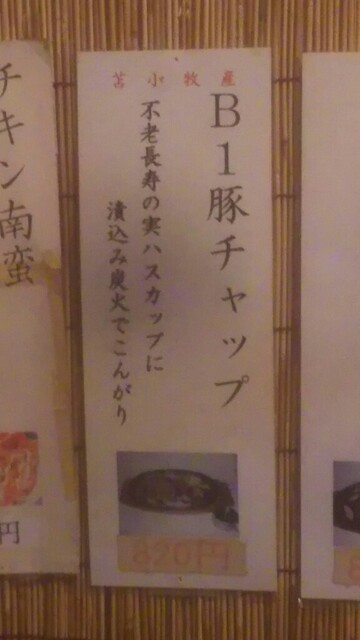 苫小牧産
B1豚チャップ
不老長寿の実ハスカップに
漬込み炭火でこんがり
820円
チキン南蛮
円